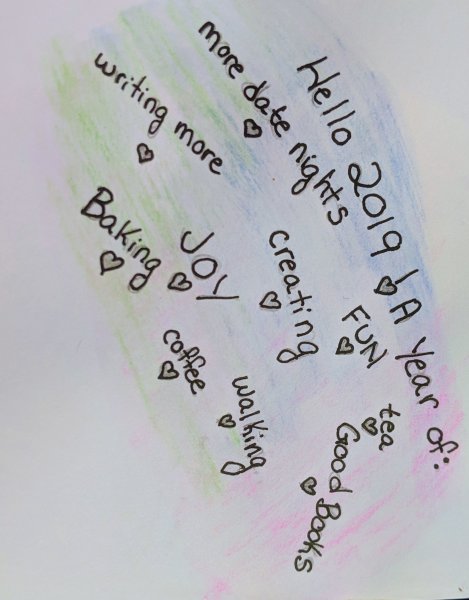 Hello 2019! A year of:
more date nights
FUN
tea
creating
Good Books
writing more
JOY
walking
Baking
coffee